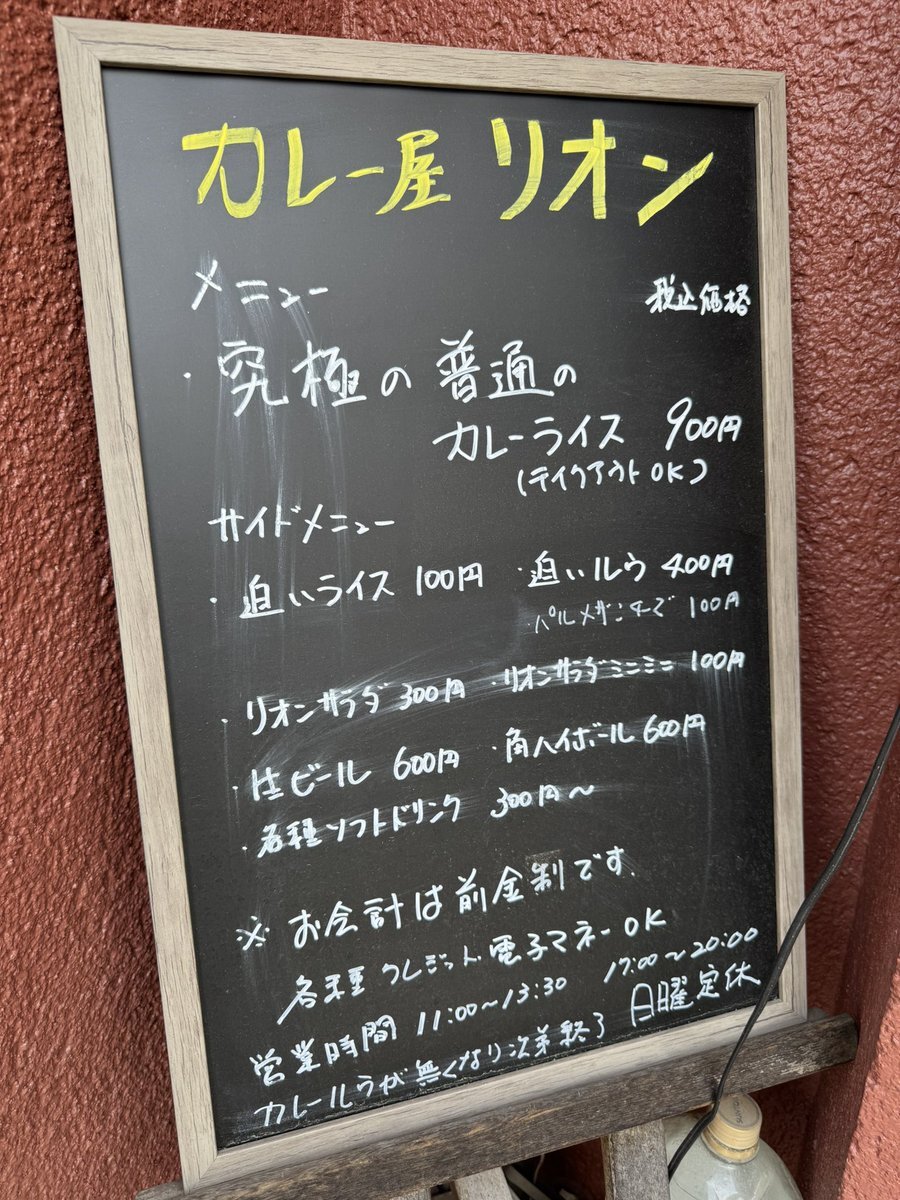 カレー屋 リオン
メニュー 税込価格
・究極の普通の
カレーライス 900円
(テイクアウトOK)
サイドメニュー
・追いライス 100円 ・追いルウ 400円
・パルメザンチーズ 100円
・リオンサラダ 300円 ・リオンサラダミニミニ 100円
・生ビール 600円 ・角ハイボール 600円
・各種ソフトドリンク 300円〜
※お会計は前金制です.
各種クレジット、電子マネーOK
営業時間 11:00〜13:30 17:00〜20:00
カレールウが無くなり次第終了 日曜定休